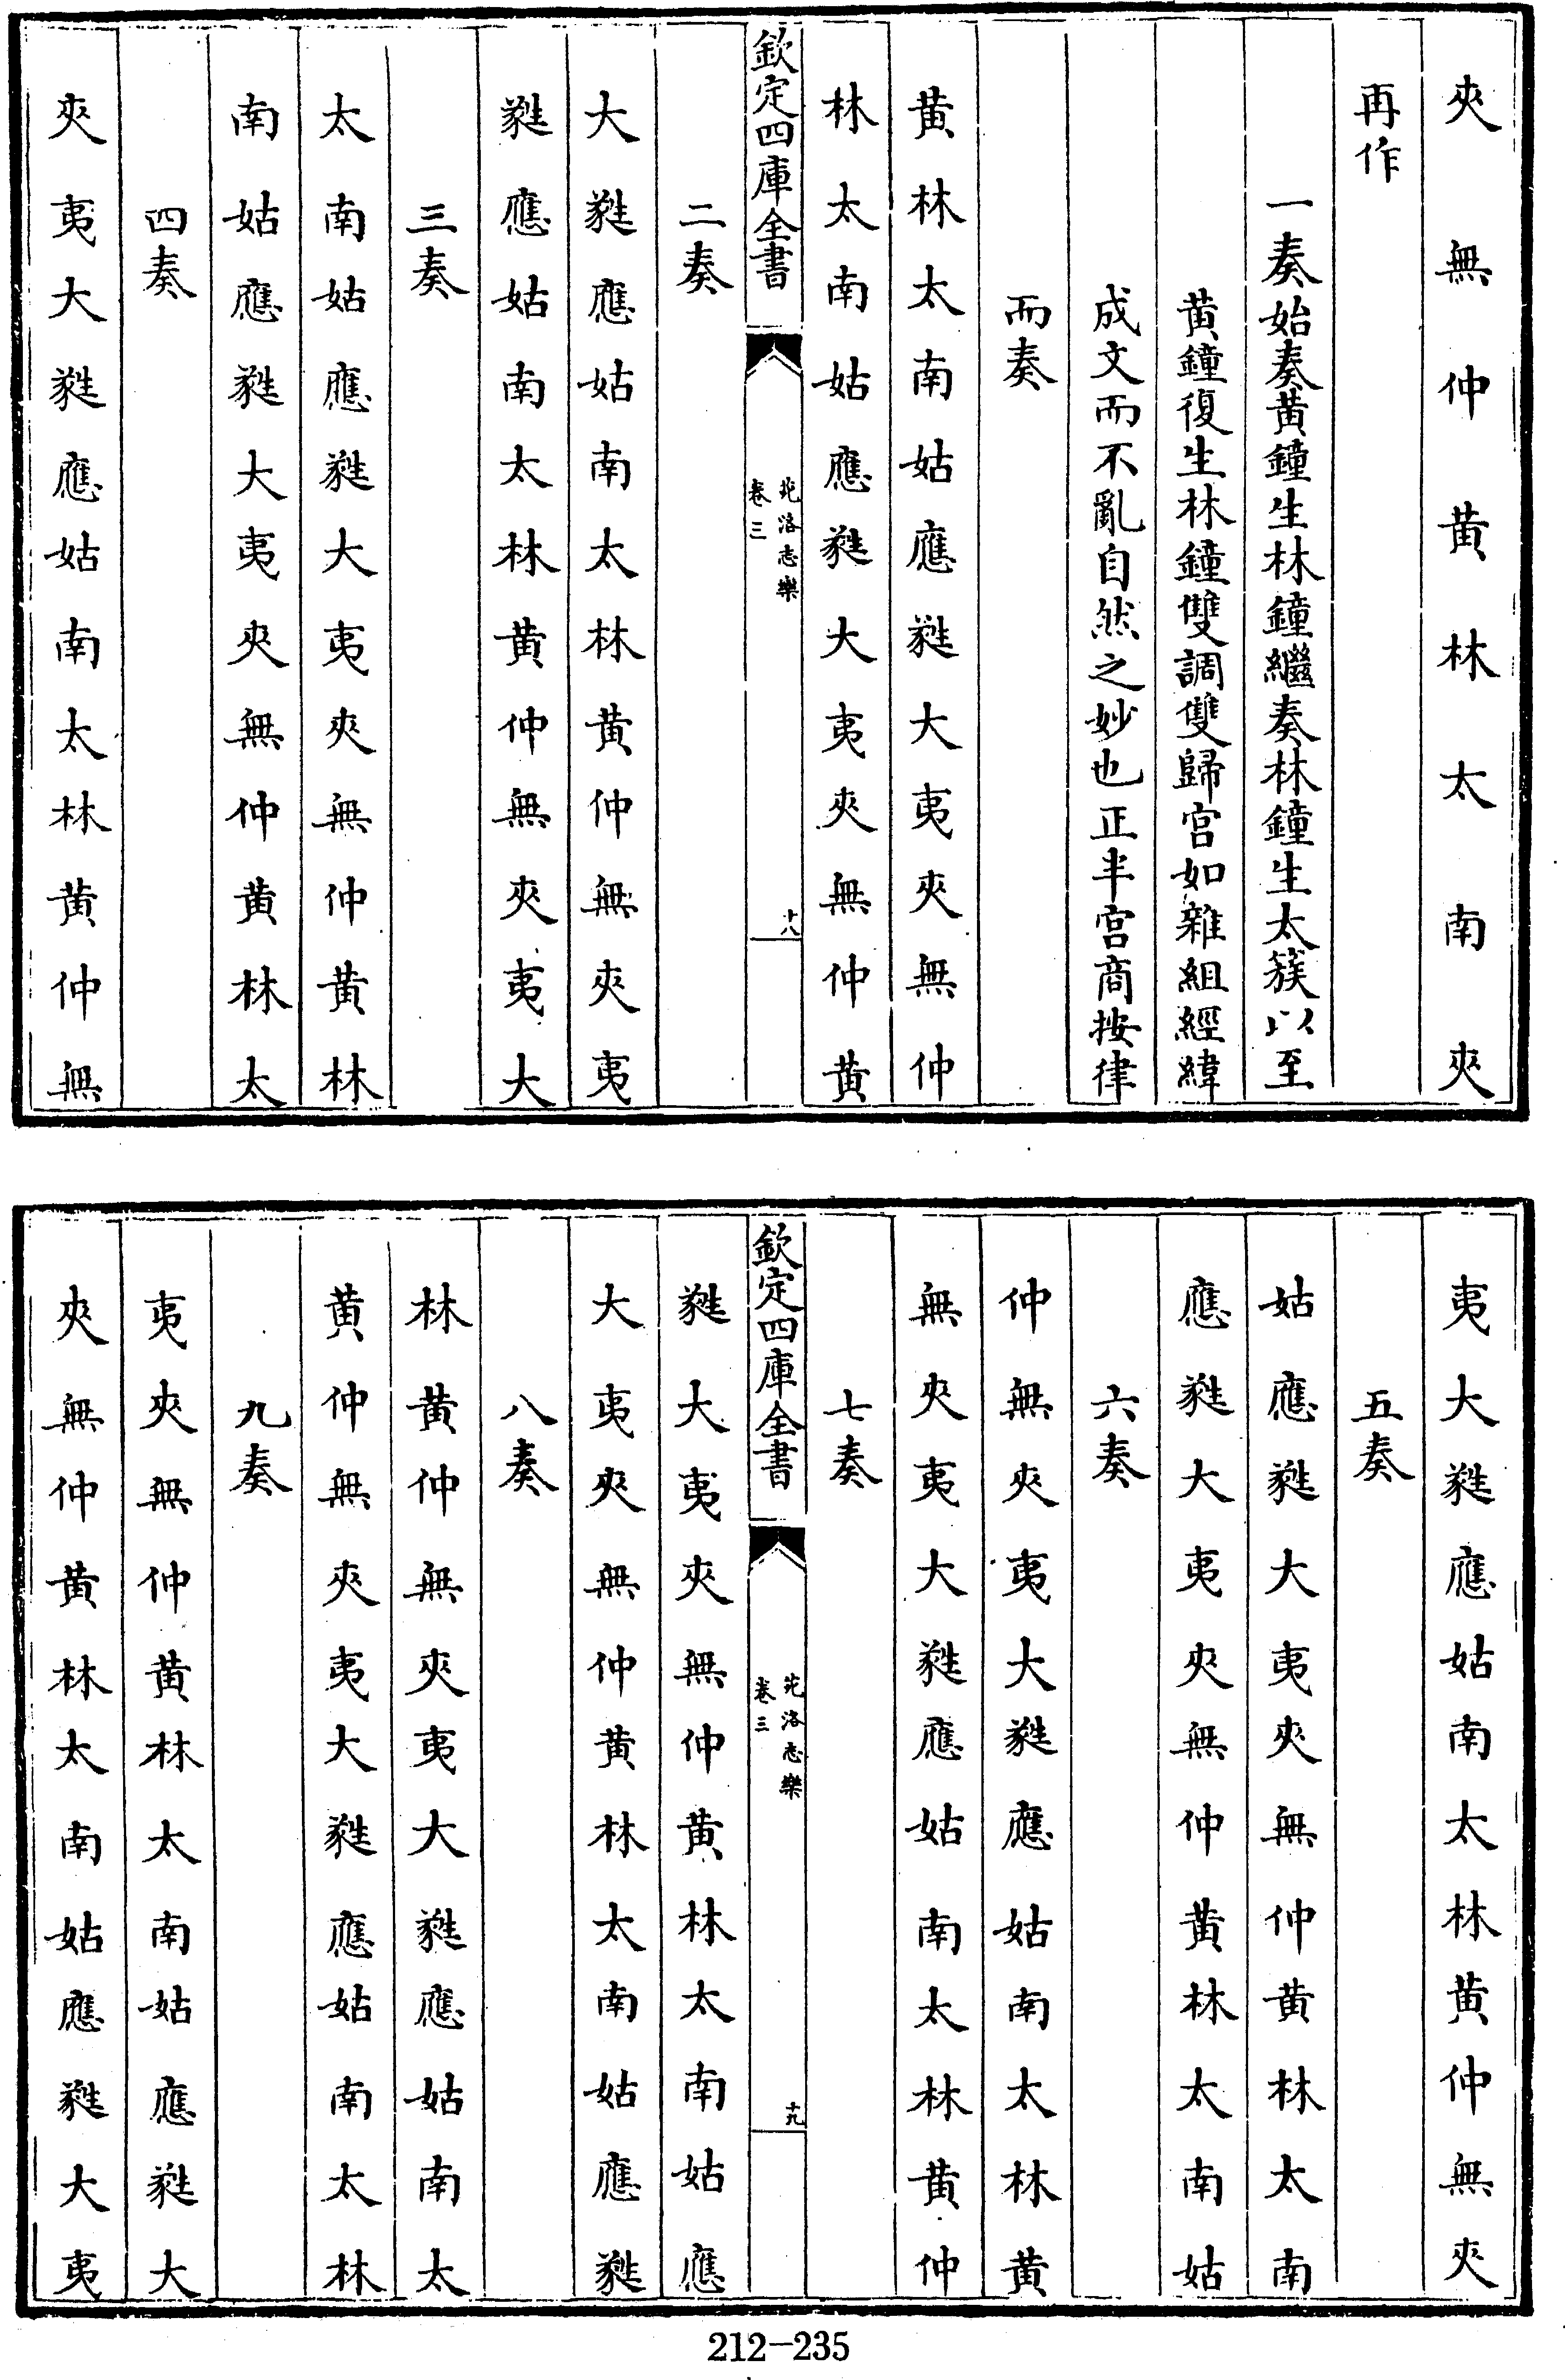 夾無仲黄林太南夾
再作
一奏始奏黄鐘生林鐘繼奏林鐘生太簇以至
黄鐘復生林鐘雙調雙歸宫如雜組經緯
成文而不亂自然之妙也正半宫商按律
而奏
黄林太南姑應蕤大夷夾無仲
林太南姑應蕤大夷夾無仲黄
欽定四庫全書
苑洛志樂
卷三
十八
二奏
大蕤應姑南太林黄仲無夾夷
蕤應姑南太林黄仲無夾夷大
三奏
太南姑應蕤大夷夾無仲黄林
南姑應蕤大夷夾無仲黄林太
四奏
夾夷大蕤應姑南太林黄仲無
夷大蕤應姑南太林黄仲無夾
五奏
姑應蕤大夷夾無仲黄林太南
應蕤大夷夾無仲黄林太南姑
六奏
仲無夾夷大蕤應姑南太林黄
無夾夷大蕤應姑南太林黄仲
七奏
欽定四庫全書
苑洛志樂
卷三
十九
蕤大夷夾無仲黄林太南姑應
大夷夾無仲黄林太南姑應蕤
八奏
林黄仲無夾夷大蕤應姑南太
黄仲無夾夷大蕤應姑南太林
九奏
夷夾無仲黄林太南姑應蕤大
夾無仲黄林太南姑應蕤大夷
212-235